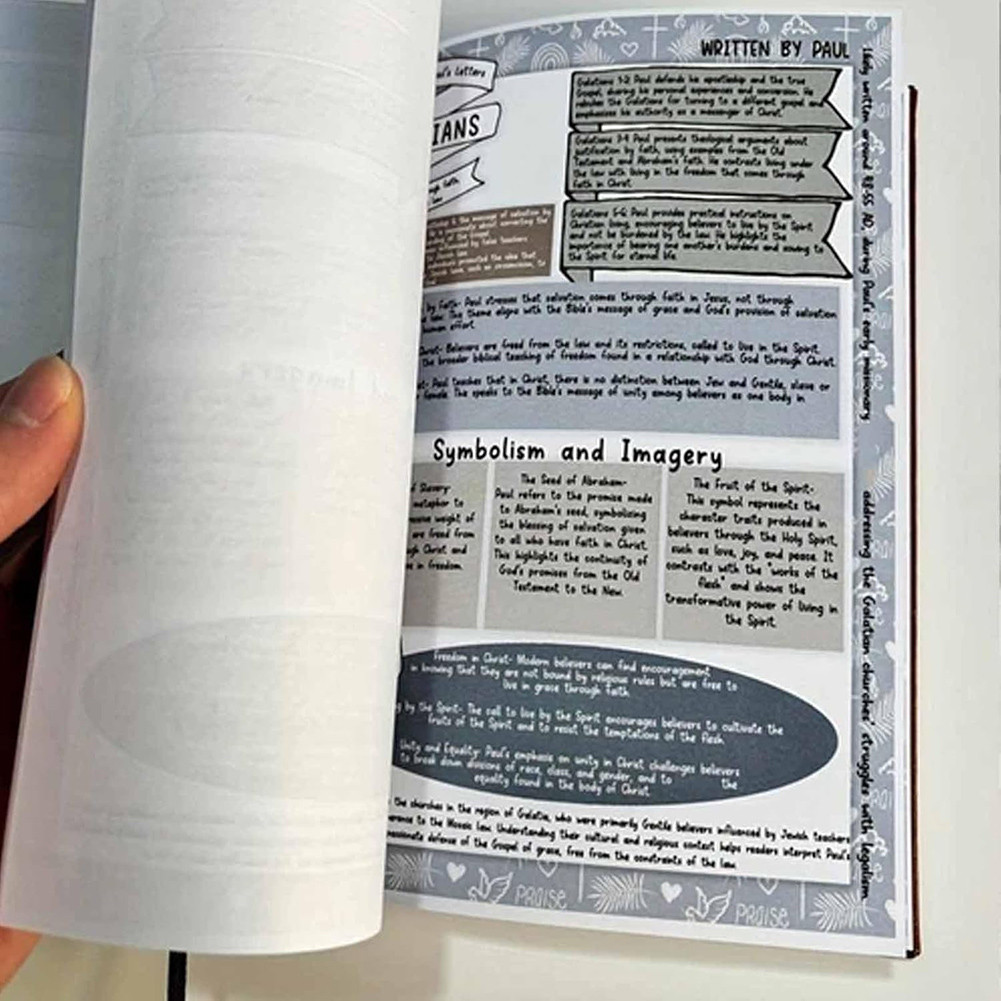 WRITTEN BY PAUL
Paul's Letters
IANS
Galatians 1-2: Paul defends his apostleship and the true
Gospel, sharing his personal experiences and conversion. He
rebukes the Galatians for turning to a different gospel and
emphasizes his authority as a messenger of Christ.
Galatians 3-4: Paul presents theological arguments about
justification by faith, using examples from the Old
Testament and Abraham's faith. He contrasts living under
the law with living in the freedom that comes through
faith in Christ.
Galatians 5-6: Paul provides practical instructions on
Christian living, encouraging believers to live by the Spirit
and not be burdened by the law. He highlights the
importance of bearing one another's burdens and sowing to
the Spirit for eternal life.
the message of salvation by
by false teachers
promoted the idea that
by Faith- Paul stresses that salvation comes through faith in Jesus, not through
law. This theme aligns with the Bible's message of grace and God's provision of salvation
human effort.
Christ- Believers are freed from the law and its restrictions, called to live in the Spirit.
the broader biblical teaching of freedom found in a relationship with God through Christ.
Paul teaches that in Christ, there is no distinction between Jew and Gentile, slave or
female. The speaks to the Bible's message of unity among believers as one body in
Symbolism and Imagery
of Slavery-
metaphor to
weight of
are freed from
Christ and
in freedom.
The Seed of Abraham-
Paul refers to the promise made
to Abraham's seed, symbolizing
the blessing of salvation given
to all who have faith in Christ.
This highlights the continuity of
God's promises from the Old
Testament to the New.
The Fruit of the Spirit-
This symbol represents the
character traits produced in
believers through the Holy Spirit,
such as love, joy, and peace. It
contrasts with the "works of the
flesh" and shows the
transformative power of living in
the Spirit.
Freedom in Christ- Modern believers can find encouragement
in knowing that they are not bound by religious rules but are free to
live in grace through faith.
by the Spirit- The call to live by the Spirit encourages believers to cultivate the
fruits of the Spirit and to resist the temptations of the flesh.
Unity and Equality- Paul's emphasis on unity in Christ challenges believers
to break down divisions of race, class, and gender, and to the
equality found in the body of Christ.
the churches in the region of Galatia, who were primarily Gentile believers influenced by Jewish teachers
to the Mosaic law. Understanding their cultural and religious context helps readers interpret Paul's
passionate defense of the Gospel of grace, free from the constraints of the law.
written around 48-55 AD, during Paul's early missionary
addressing the Galatian churches' struggles with legalism.
PRAISE
PRAISE